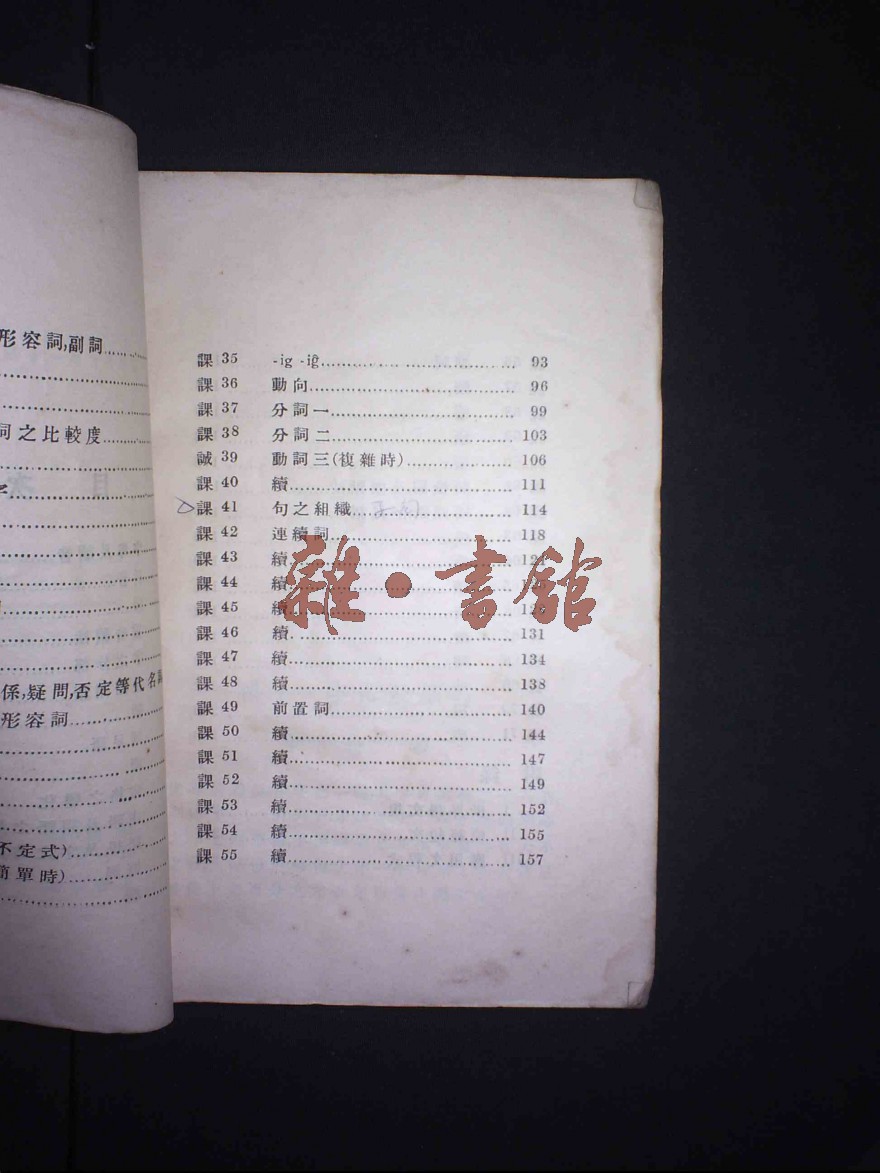 形容詞,副詞
詞之比較度
係,疑問,否定等代名
形容詞
不定式)
簡單時)
課 35 -ig -iĝ 93
課 36 動向 96
課 37 分詞一 99
課 38 分詞二 103
誠 39 動詞三(複雜時) 106
課 40 續 111
課 41 句之組織 114
課 42 連續詞 118
課 43 續
課 44 續
課 45 續
課 46 續 131
課 47 續 134
課 48 續 138
課 49 前置詞 140
課 50 續 144
課 51 續 147
課 52 續 149
課 53 續 152
課 54 續 155
課 55 續 157
雜·書館